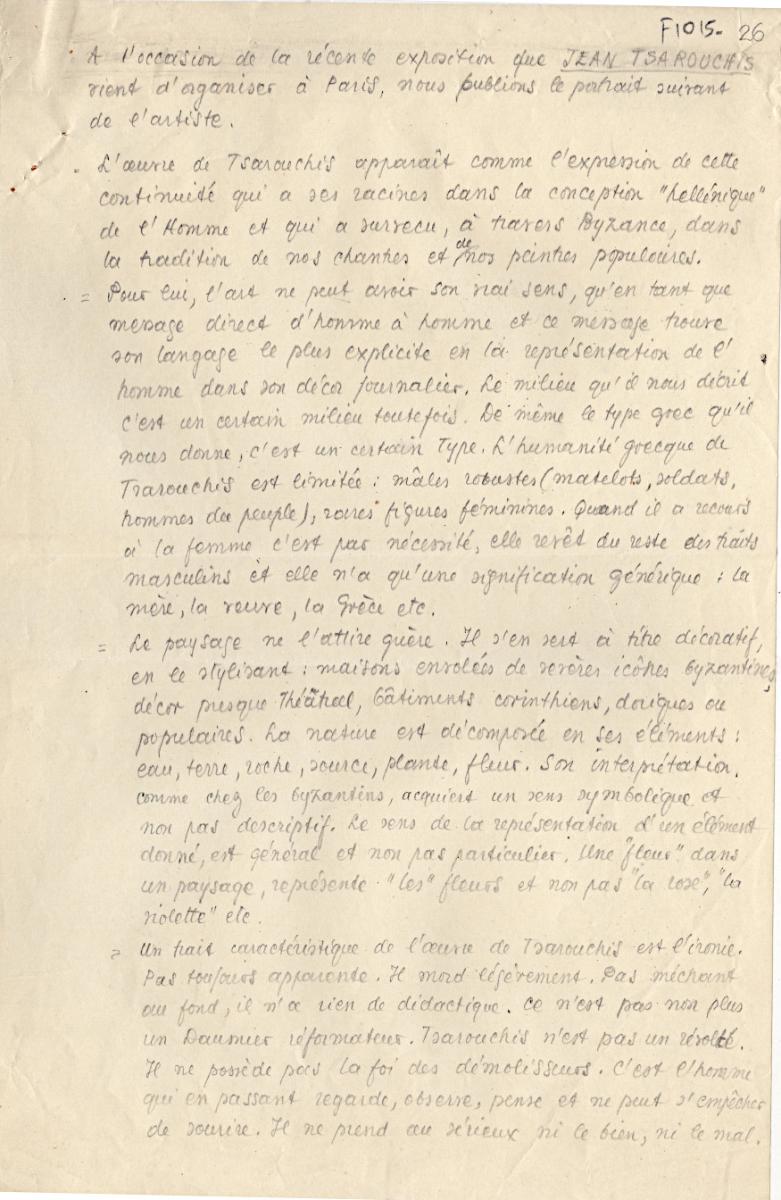 F1015- 26
A l'occasion de la récente exposition que JEAN TSAROUCHIS
vient d'organiser à Paris, nous publions le portrait suivant
de l'artiste.
L'œuvre de Tsarouchis apparaît comme l'expression de cette
continuité qui a ses racines dans la conception "hellénique"
de l'Homme et qui a survecu, à travers Byzance, dans
la tradition de nos chantres et de nos peintres populaires.
= Pour lui, l'art ne peut avoir son vrai sens, qu'en tant que
message direct d'homme à homme et ce message trouve
son langage le plus explicite en la représentation de l'
homme dans son décor journalier. Le milieu qu'il nous décrit
c'est un certain milieu toutefois. De même le type grec qu'il
nous donne, c'est un certain Type. L'humanité grecque de
Tsarouchis est limitée : mâles robustes (matelots, soldats,
hommes du peuple), rares figures féminines. Quand il a recours
à la femme c'est par nécessité, elle revêt du reste des traits
masculins et elle n'a qu'une signification générique : la
mère, la veuve, la Grèce etc.
= Le paysage ne l'attire guère. Il s'en sert à titre décoratif,
en le stylisant : maisons envolées de sévères icônes byzantines,
décor presque Théâtral, bâtiments corinthiens, doriques ou
populaires. La nature est décomposée en ses éléments :
eau, terre, roche, source, plante, fleur. Son interprétation,
comme chez les byzantins, acquiert un sens symbolique et
non pas descriptif. Le sens de la représentation d'un élément
donné, est général et non pas particulier. Une "fleur" dans
un paysage, représente "les" fleurs et non pas "la rose", "la
violette" etc.
= Un trait caractéristique de l'œuvre de Tsarouchis est l'ironie.
Pas toujours apparente. Il mord légèrement. Pas méchant
au fond, il n'a rien de didactique. Ce n'est pas non plus
un Daumier réformateur. Tsarouchis n'est pas un révolté.
Il ne possède pas la foi des démolisseurs. C'est l'homme
qui en passant regarde, observe, pense et ne peut s'empêcher
de sourire. Il ne prend au sérieux ni le bien, ni le mal.